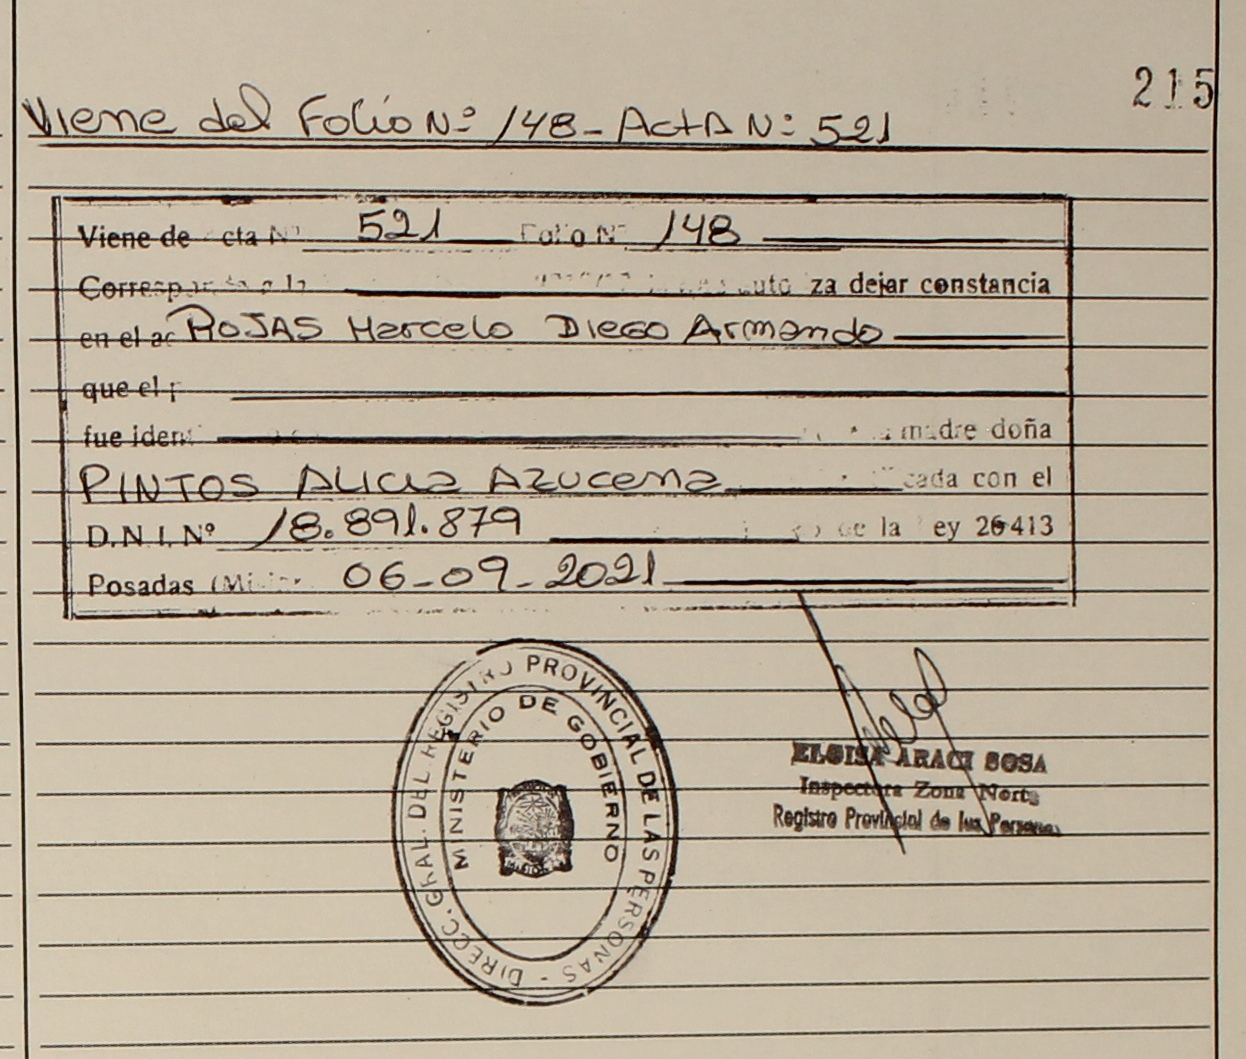 215
Viene del Folio Nº 148 - Acta Nº 521
Viene de cta Nº 521 Folio Nº 148
za dejar constancia
en el ac ROJAS Marcelo Diego Armando
que el p
fue iden madre doña
PINTOS Alicia Azucena cada con el
D.N.I. Nº 18.891.879 de la ey 26413
Posadas (Mi 06-09-2021
DIRECC. GRAL. DEL REGISTRO PROVINCIAL DE LAS PERSONAS -
MINISTERIO DE GOBIERNO
ELOISA ARACI SOSA
Inspectora Zona Norte
Registro Provincial de las Personas